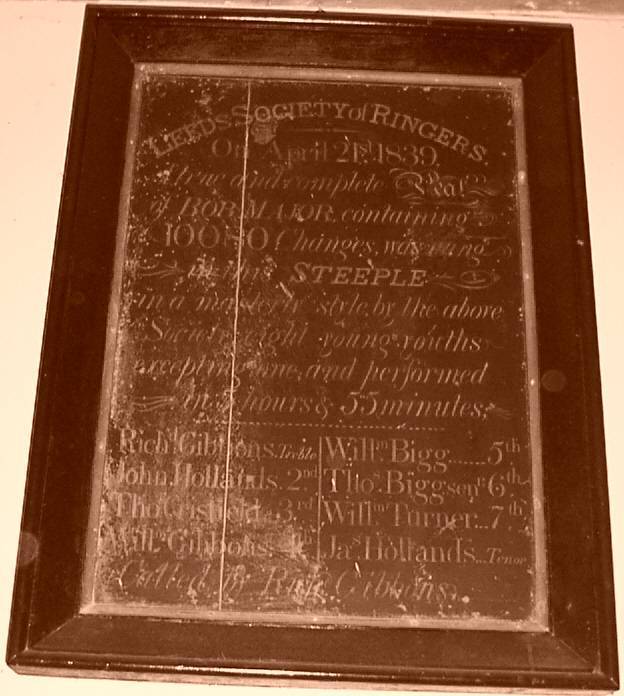 LEEDS SOCIETY of RINGERS.
On April 21st 1839,
A true and complete Peal
of BOB MAJOR containing
10080 Changes, was rung
in this STEEPLE
in a masterly style, by the above
Society, eight young youths
excepting one, and performed
in hours & 55 minutes;
Richd. Gibbons. Treble
John. Hollands. 2nd
Thos. 3rd
Willm. Gibbons. 4th
Willm. Bigg...... 5th
Thos. Bigg senr. 6th
Willm. Turner... 7th
Jas. Hollands... Tenor
Called by Richd. Gibbons.